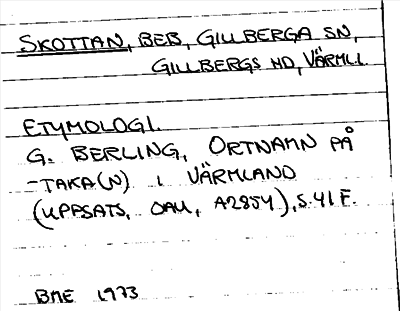 SKOTTAN, BEB, GILLBERGA SN,
GILLBERGS HD, VÄRML.
ETYMOLOGI.
G. BERLING, ORTNAMN PÅ
-TAKA(N) I VÄRMLAND
(UPPSATS, OAU, A2854), S. 41 F.
BME 1973